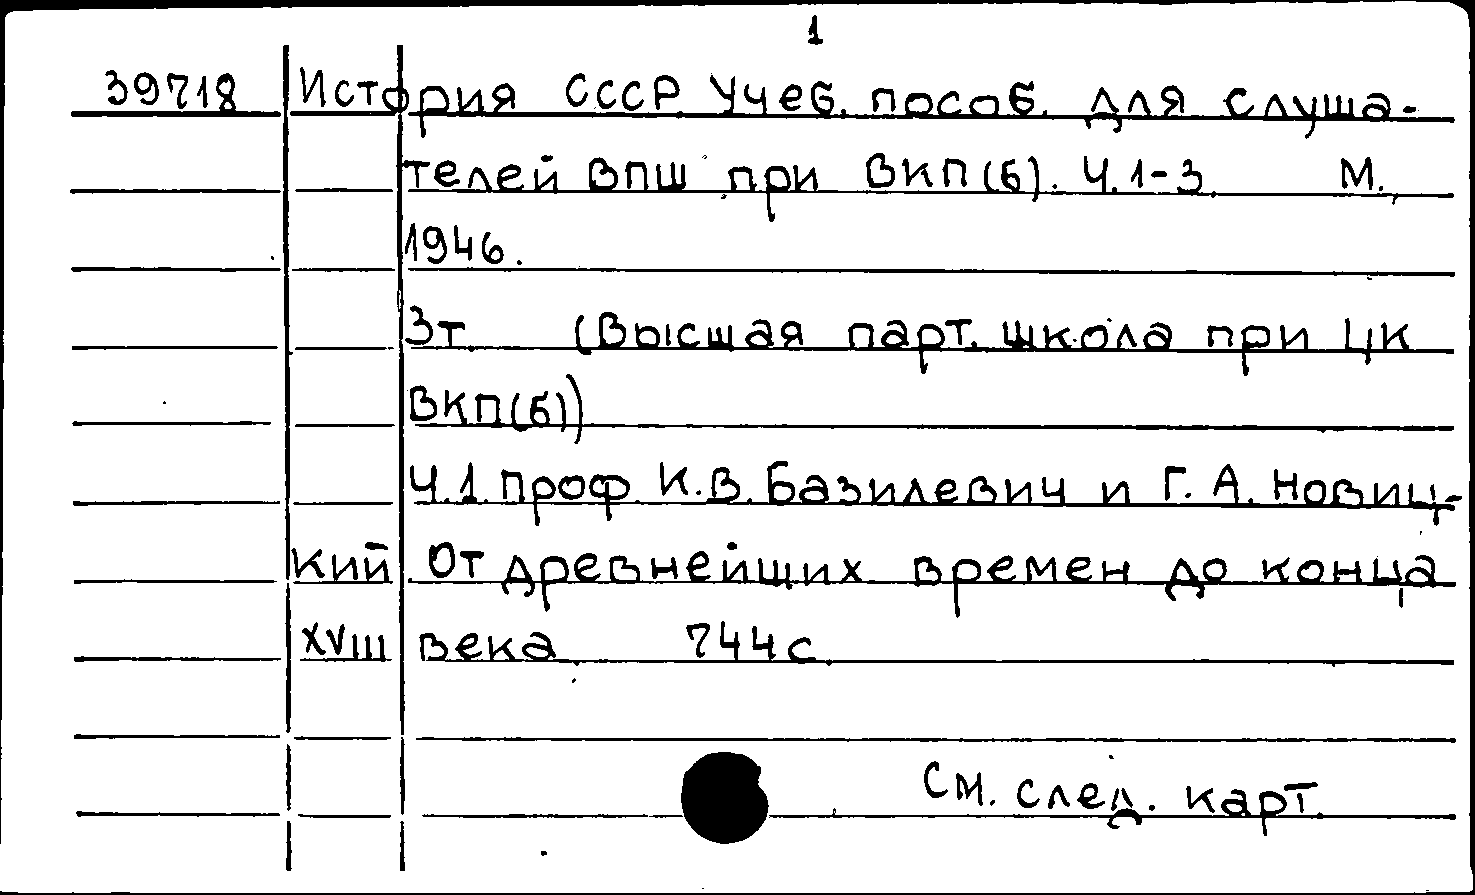 1
39718 История СССР Учеб. пособ. для слуша-
телей ВПШ при ВКП(б). Ч.1-3. М.,
1946.
3т. (Высшая парт. школа при ЦК
ВКП(б))
Ч.1. проф. К.В. Базилевич и Г. А. Новиц-
кий. От древнейших времен до конца
XVIII века 744с.
См. след. карт.